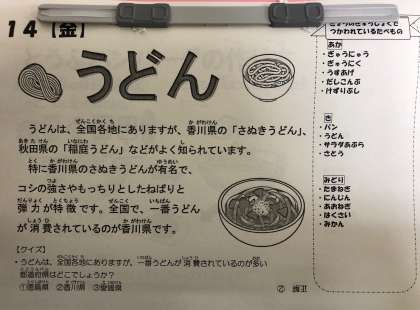 14【金】
うどん
うどんは、全国各地にありますが、香川県の「さぬきうどん」、
秋田県の「稲庭うどん」などがよく知られています。
特に香川県のさぬきうどんが有名で、
コシの強さやもっちりとしたねばりと
弾力が特徴です。全国で、一番うどん
が消費されているのが香川県です。
【クイズ】
・うどんは、全国各地にありますが、一番うどんが消費されているのが多い
都道府県はどこでしょうか?
①徳島県 ②香川県 ③愛媛県
つかわれているたべもの
あか
・ぎゅうにゅう
・ぎゅうにく
・うすあげ
・だしこんぶ
・けずりぶし
き
・パン
・うどん
・サラダあぶら
・さとう
みどり
・たまねぎ
・にんじん
・あおねぎ
・はくさい
・みかん